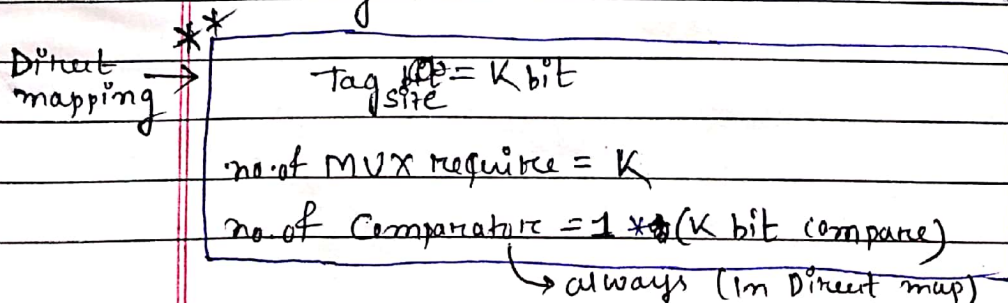 **
Direct
mapping → Tag size = K bit
no. of MUX require = K
no. of Comparator = 1 * (K bit compare)
↳ always (In Direct map)